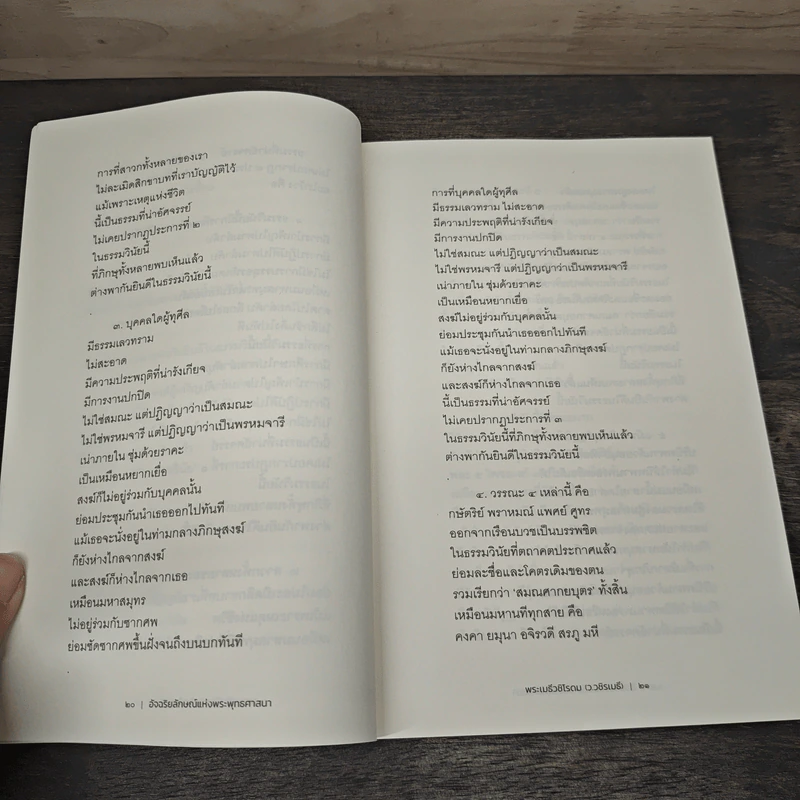 การที่สาวกทั้งหลายของเรา
ไม่ละเมิดสิกขาบทที่เราบัญญัติไว้
แม้เพราะเหตุแห่งชีวิต
นี้เป็นธรรมที่น่าอัศจรรย์
ไม่เคยปรากฏประการที่ ๒
ในธรรมวินัยนี้
ที่ภิกษุทั้งหลายพบเห็นแล้ว
ต่างพากันยินดีในธรรมวินัยนี้
๓. บุคคลใดผู้ทุศีล
มีธรรมเลวทราม
ไม่สะอาด
มีความประพฤติที่น่ารังเกียจ
มีการงานปกปิด
ไม่ใช่สมณะ แต่ปฏิญญาว่าเป็นสมณะ
ไม่ใช่พรหมจารี แต่ปฏิญญาว่าเป็นพรหมจารี
เน่าภายใน ชุ่มด้วยราคะ
เป็นเหมือนหยากเยื่อ
สงฆ์ก็ไม่อยู่ร่วมกับบุคคลนั้น
ย่อมประชุมกันนำเธอออกไปทันที
แม้เธอจะนั่งอยู่ในท่ามกลางภิกษุสงฆ์
ก็ยังห่างไกลจากสงฆ์
และสงฆ์ก็ห่างไกลจากเธอ
เหมือนมหาสมุทร
ไม่อยู่ร่วมกับซากศพ
ย่อมซัดซากศพขึ้นฝั่งจนถึงบนบกทันที
๒๐ | อัจฉริยลักษณ์แห่งพระพุทธศาสนา
การที่บุคคลใดผู้ทุศีล
มีธรรมเลวทราม ไม่สะอาด
มีความประพฤติที่น่ารังเกียจ
มีการงานปกปิด
ไม่ใช่สมณะ แต่ปฏิญญาว่าเป็นสมณะ
ไม่ใช่พรหมจารี แต่ปฏิญญาว่าเป็นพรหมจารี
เน่าภายใน ชุ่มด้วยราคะ
เป็นเหมือนหยากเยื่อ
สงฆ์ไม่อยู่ร่วมกับบุคคลนั้น
ย่อมประชุมกันนำเธอออกไปทันที
แม้เธอจะนั่งอยู่ในท่ามกลางภิกษุสงฆ์
ก็ยังห่างไกลจากสงฆ์
และสงฆ์ก็ห่างไกลจากเธอ
นี้เป็นธรรมที่น่าอัศจรรย์
ไม่เคยปรากฏประการที่ ๓
ในธรรมวินัยนี้ที่ภิกษุทั้งหลายพบเห็นแล้ว
ต่างพากันยินดีในธรรมวินัยนี้
๔. วรรณะ ๔ เหล่านี้ คือ
กษัตริย์ พราหมณ์ แพศย์ ศูทร
ออกจากเรือนบวชเป็นบรรพชิต
ในธรรมวินัยที่ตถาคตประกาศแล้ว
ย่อมละชื่อและโคตรเดิมของตน
รวมเรียกว่า ‘สมณศากยบุตร’ ทั้งสิ้น
เหมือนมหานทีทุกสาย คือ
คงคา ยมุนา อจิรวดี สรภู มหี
พระเมธีวชิโรดม (ว.วชิรเมธี) | ๒๑